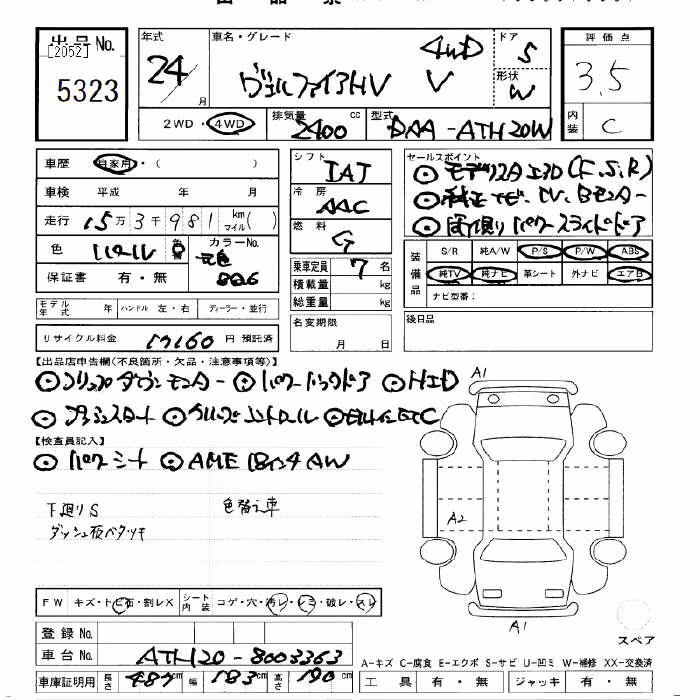 出品No. [2052] 5323
年式 24/ 月
車名・グレード ヴェルファイアHV V 4WD
ドア 5
形状 W
評価点 3.5
内装 C
2WD・4WD
排気量 2400 cc
型式 DAA-ATH20W
車歴 自家用・( )
車検 平成 年 月
走行 15万3千981 km マイル( )
色 パール 色替
カラーNo. 元色 8Q6
保証書 有・無
シフト IAT
冷房 AAC
燃料 G
乗車定員 7名
積載量 kg
総重量 kg
セールスポイント
◎モデリスタエアロ(F,S,R)
◎純正ナビ、TV、Bモニター
◎両側パワースライドドア
装備品 S/R 純A/W P/S P/W ABS
純TV 純ナビ 革シート 外ナビ エアB
ナビ型番:
モデル年式 年 ハンドル 左・右 ディーラー・並行
リサイクル料金 17160 円 預託済
名変期限 月 日
後日品
【出品店申告欄(不良箇所・欠品・注意事項等)】
◎フリップダウンモニター ◎パワーバックドア ◎HID
◎プッシュスタート ◎クルーズコントロール ◎ビルトインETC
【検査員記入】
◎パワーシート ◎AME 18インチAW
下廻りS 色替え車
ダッシュ板ベタツキ
A1
A2
A1
スペア
FW キズ・トビ石・割レX シート内装 コゲ・穴・汚レ・シミ・破レ・スレ
登録No.
車台No. ATH20-8003363
車庫証明用 長さ 487cm 幅 183cm 高さ 190cm
A-キズ C-腐食 E-エクボ S-サビ U-凹ミ W-補修 XX-交換済
工具 有・無 ジャッキ 有・無